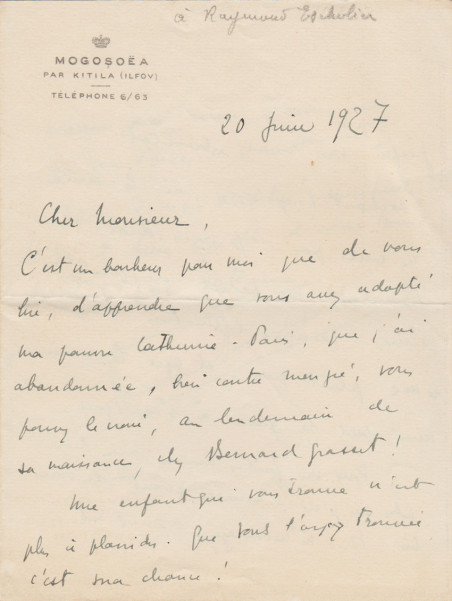 à Raymond Escholier
MOGOȘOËA
PAR KITILA (ILFOV)
TÉLÉPHONE 6/63
20 Juin 1927
Cher Monsieur,
C'est un bonheur pour moi que de vous
lire, d'apprendre que vous avez adopté
ma pauvre Catherine-Paris, que j'ai
abandonnée, bien contre mon gré, vous
pouvez le croire, au lendemain de
sa naissance, chez Bernard Grasset !
Une enfant que vous trouvez n'est
plus à plaindre. Que vous l'ayez trouvée
c'est sa chance !